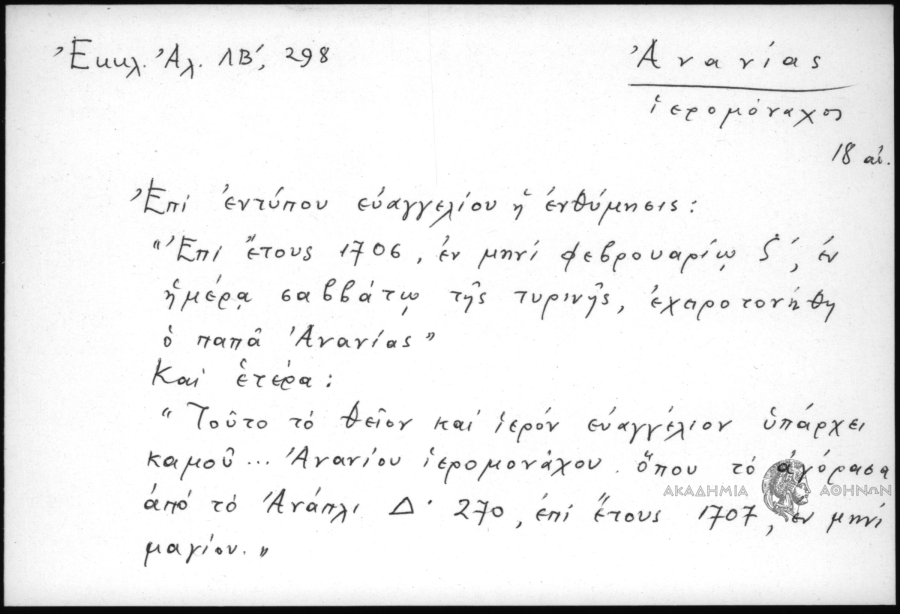 Ἐκκλ. Ἀλ. ΛΒ΄, 298
Ἀνανίας
ἱερομόναχος
18 αἰ.
Ἐπί ἐντύπου εὐαγγελίου ἡ ἐνθύμησις:
"Ἐπί ἔτους 1706, ἐν μηνί φεβρουαρίῳ ζ΄, ἐν
ἡμέρᾳ σαββάτῳ τῆς τυρινῆς, ἐχειροτονήθη
ὁ παπᾶ Ἀνανίας"
Καί ἑτέρα:
"Τοῦτο τό θεῖον καί ἱερόν εὐαγγέλιον ὑπάρχει
καμοῦ... Ἀνανίου ἱερομονάχου. ὅπου τό ἀγόρασα
ἀπό τό Ἀνάπλι Δ· 270, ἐπί ἔτους 1707, ἐν μηνί
μαγίου."
ΑΚΑΔΗΜΙΑ ΑΘΗΝΩΝ